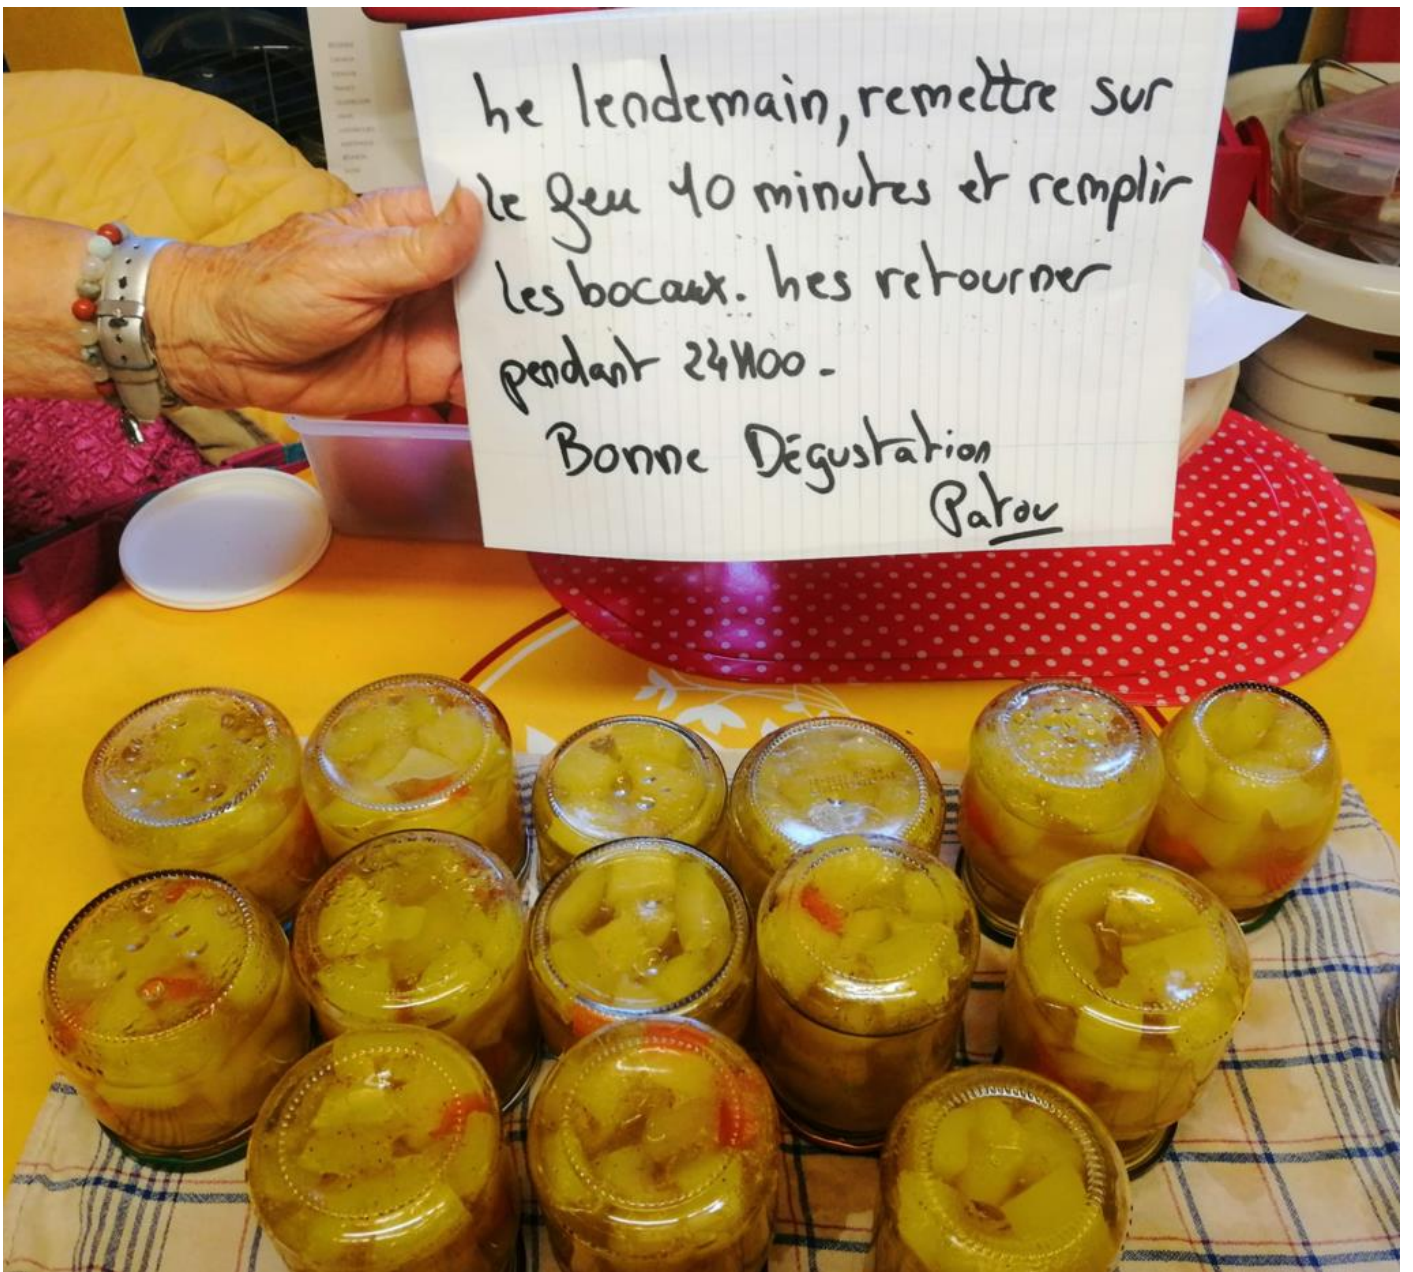 Le lendemain, remettre sur
le feu 10 minutes et remplir
les bocaux. Les retourner
pendant 24H00-
Bonne Dégustation
Patou